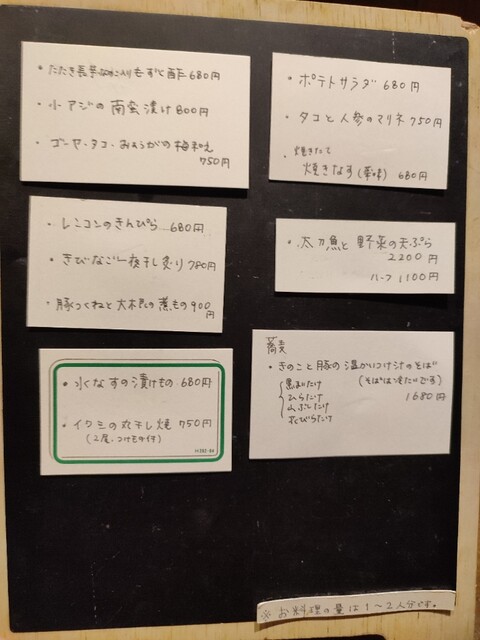 ・たたき長芋なめこ入りもずく酢 680円
・小アジの南蛮漬け 800円
・ゴーヤ・タコ・みょうがの梅和え
750円
・レンコンのきんぴら 680円
・きびなご一夜干し炙り 780円
・豚つくねと大根の煮もの 900円
・水なすの漬けもの 680円
・イワシの丸干し焼 750円
(2尾、つけもの付)
・ポテトサラダ 680円
・タコと人参のマリネ 750円
・焼きたて
焼きなす(薬味) 680円
・太刀魚と野菜の天ぷら
2200円
ハーフ 1100円
蕎麦
・きのこと豚の温かいつけ汁のそば
(そばは冷たいです)
黒ばたけ
ひらたけ
山ぶしたけ
花びらたけ
1680円
※お料理の量は1〜2人分です。